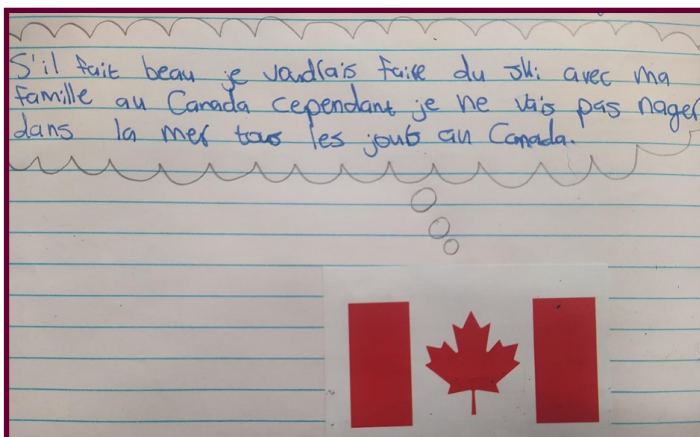 S'il fait beau je voudrais faire du ski avec ma
famille au Canada cependant je ne vais pas nager
dans la mer tous les jours au Canada.